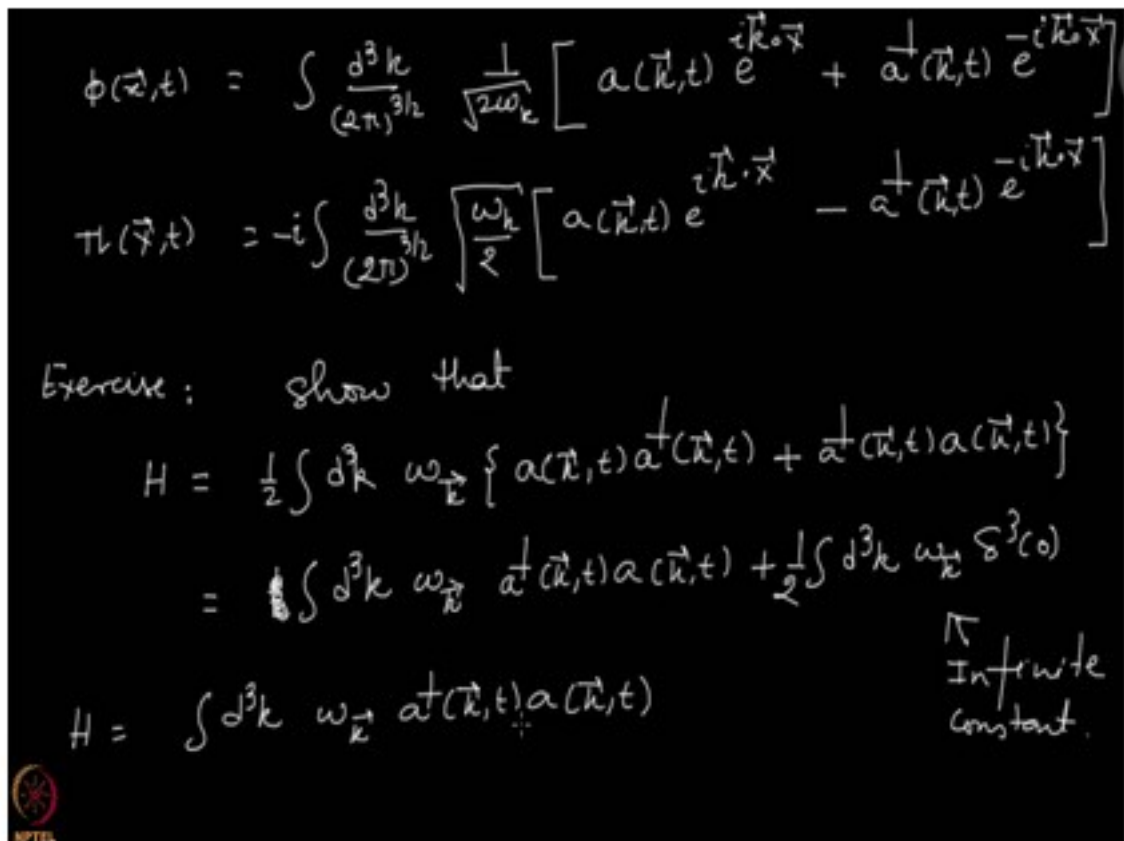 φ(x⃗,t) = ∫ d³k/(2π)^{3/2} 1/√(2ω_k) [ a(k⃗,t) e^{ik⃗·x⃗} + a†(k⃗,t) e^{-ik⃗·x⃗} ]
π(x⃗,t) = -i∫ d³k/(2π)^{3/2} √(ω_k/2) [ a(k⃗,t) e^{ik⃗·x⃗} - a†(k⃗,t) e^{-ik⃗·x⃗} ]
Exercise: show that
H = ½ ∫ d³k ω_k⃗ { a(k⃗,t) a†(k⃗,t) + a†(k⃗,t) a(k⃗,t) }
= ∫ d³k ω_k⃗ a†(k⃗,t) a(k⃗,t) + ½ ∫ d³k ω_k⃗ δ³(0)
↖
Infinite
constant.
H = ∫ d³k ω_k⃗ a†(k⃗,t) a(k⃗,t)
NPTEL